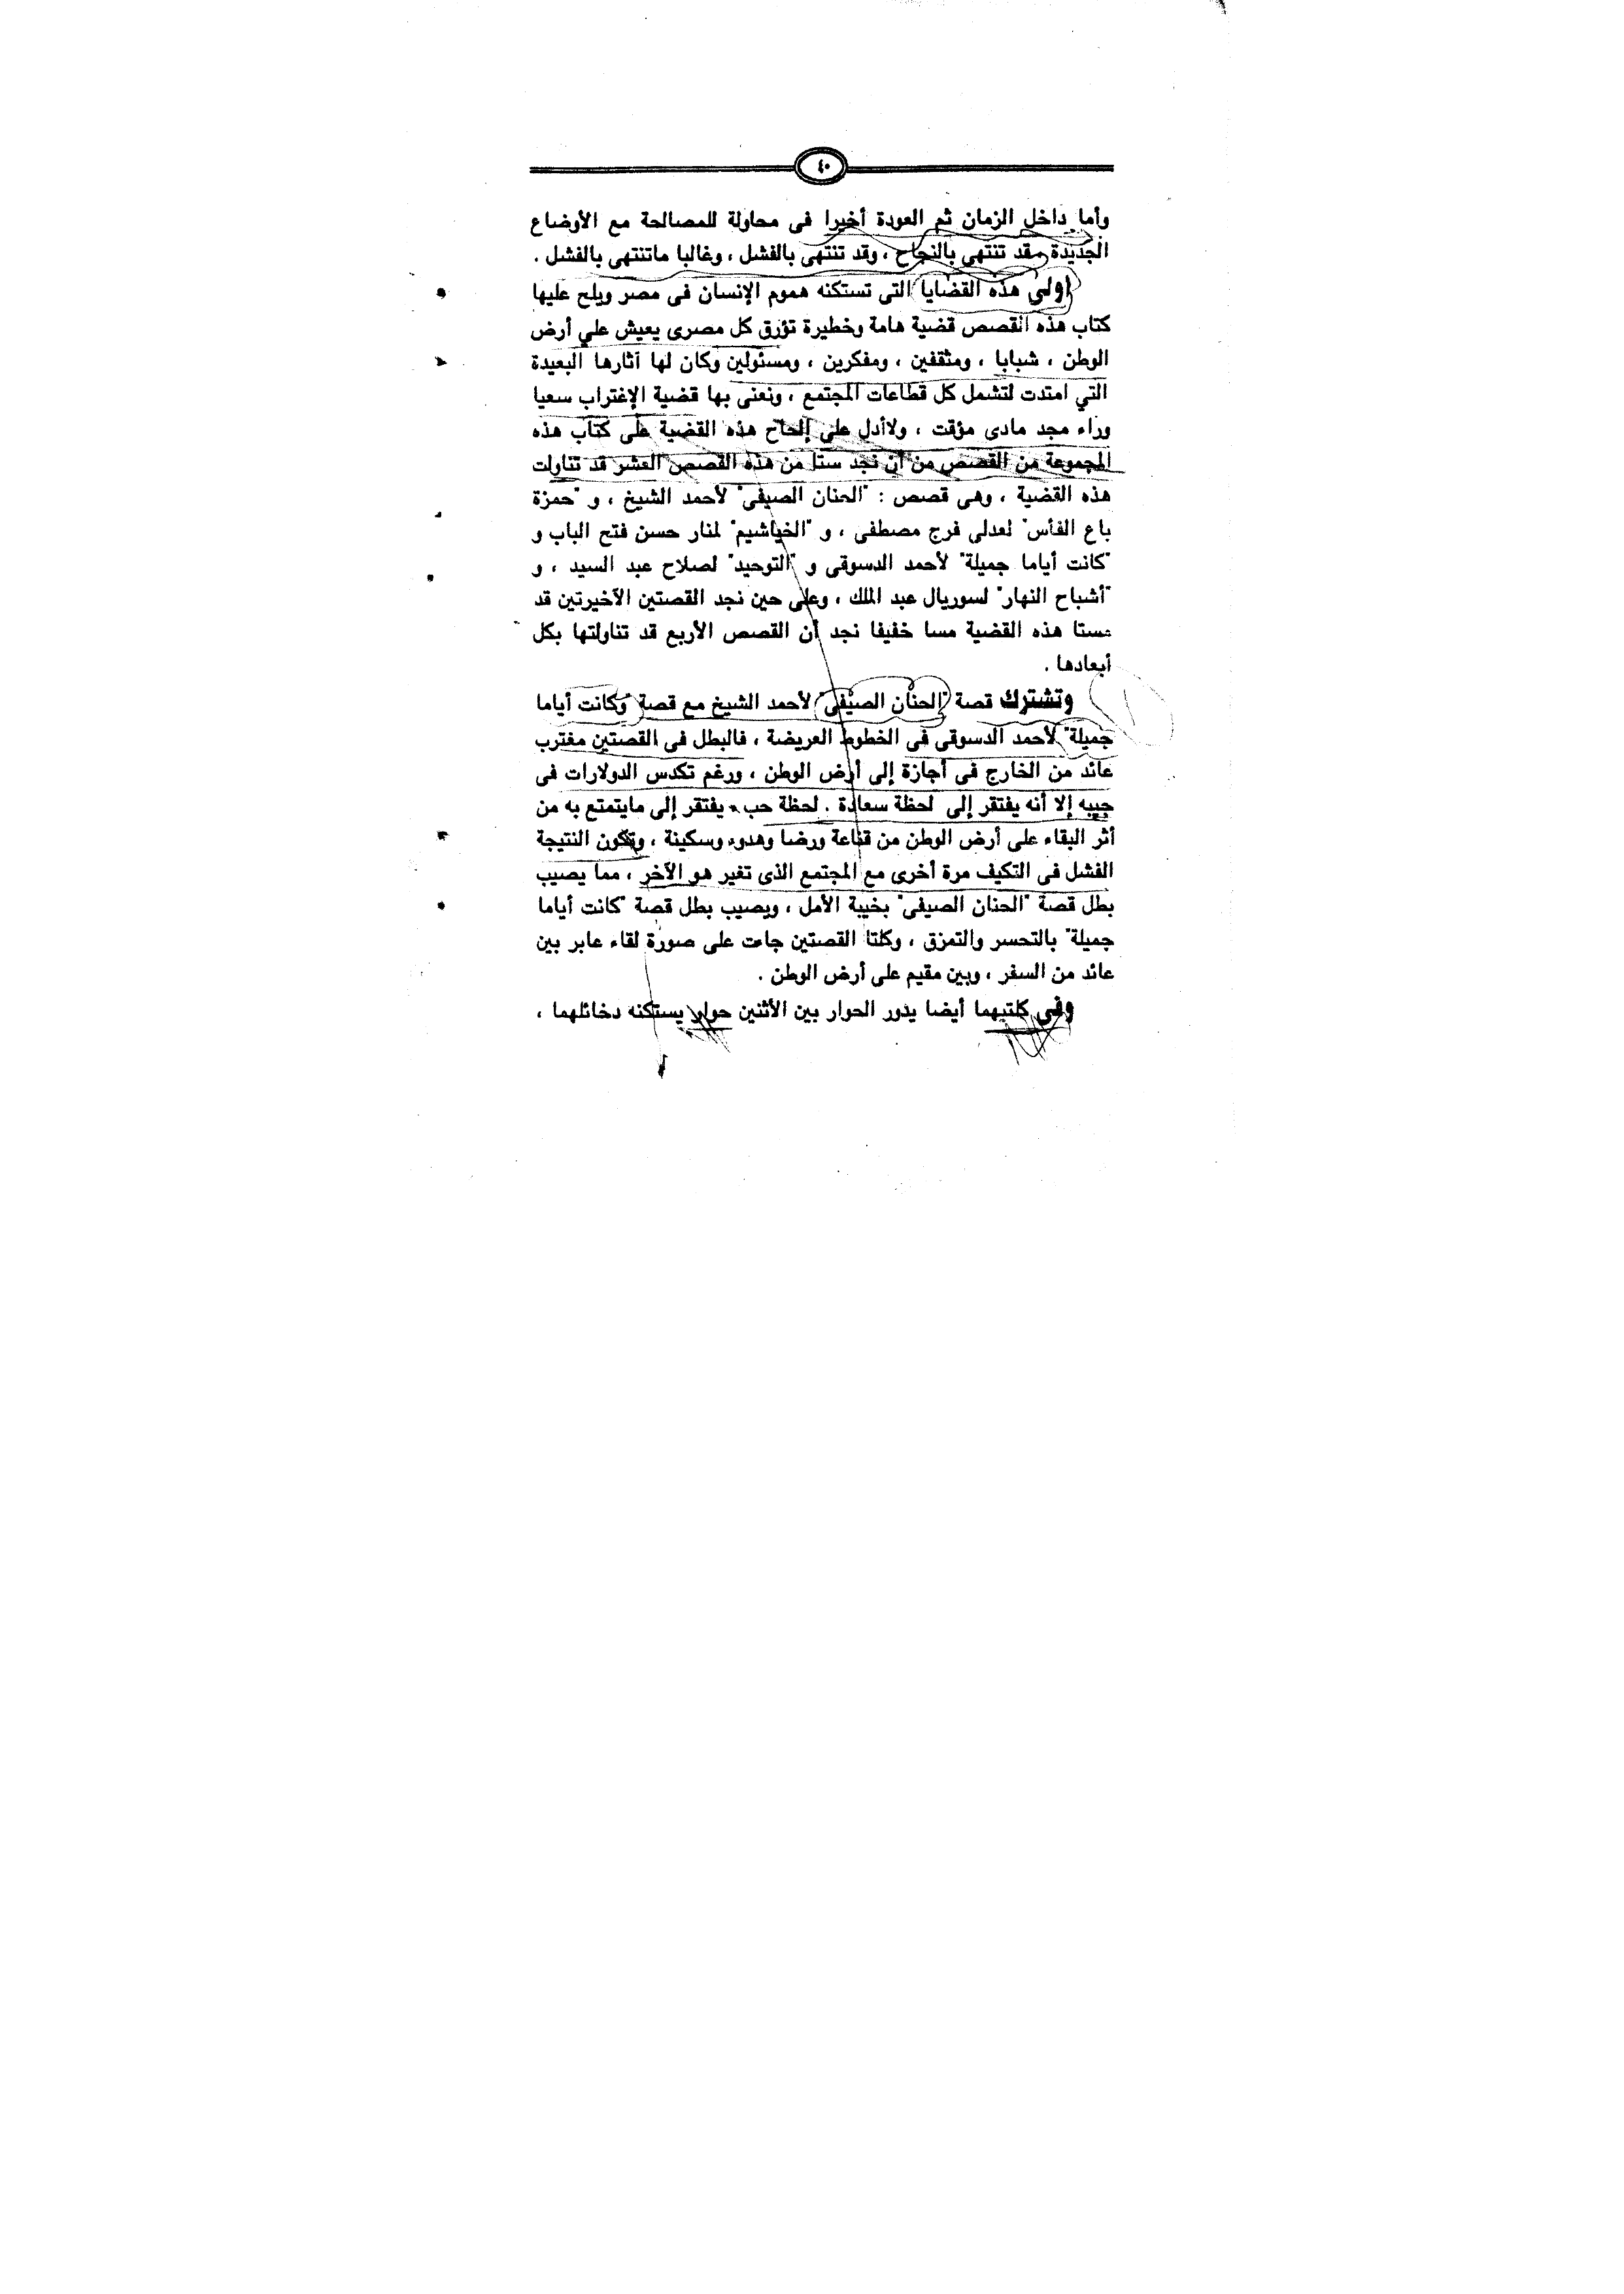 ٤٠
وأما داخل الزمان ثم العودة أخيرا فى محاولة للمصالحة مع الأوضاع
الجديدة وقد تنتهى بالنجاح ، وقد تنتهى بالفشل ، وغالبا ماتنتهى بالفشل .
أولى هذه القضايا التى تستكنه هموم الإنسان فى مصر ويلح عليها
كتاب هذه القصص قضية هامة وخطيرة تؤرق كل مصرى يعيش على أرض
الوطن ، شبابا ، ومثقفين ، ومفكرين ، ومسئولين وكان لها آثارها البعيدة
التي امتدت لتشمل كل قطاعات المجتمع ، ونعنى بها قضية الإغتراب سعيا
وراء مجد مادى مؤقت ، ولاأدل على إلحاح هذه القضية على كتاب هذه
المجموعة من القصص من أن نجد ستا من هذه القصص العشر قد تناولت
هذه القضية ، وهى قصص : "الحنان الصيفى" لأحمد الشيخ ، و "حمزة
باع الفأس" لعدلى فرج مصطفى ، و "الخياشيم" لمنار حسن فتح الباب و
"كانت أياما جميلة" لأحمد الدسوقى و "التوحيد" لصلاح عبد السيد ، و
"أشباح النهار" لسوريال عبد الملك ، وعلى حين نجد القصتين الآخيرتين قد
مستا هذه القضية مسا خفيفا نجد أن القصص الأربع قد تناولتها بكل
أبعادها .
وتشترك قصة "الحنان الصيفى" لأحمد الشيخ مع قصة "وكانت أياما
جميلة" لأحمد الدسوقى فى الخطوط العريضة ، فالبطل فى القصتين مغترب
عائد من الخارج فى أجازة إلى أرض الوطن ، ورغم تكدس الدولارات فى
جيبه إلا أنه يفتقر إلى لحظة سعادة . لحظة حب ، يفتقر إلى مايتمتع به من
أثر البقاء على أرض الوطن من قناعة ورضا وهدوء وسكينة ، وتكون النتيجة
الفشل فى التكيف مرة أخرى مع المجتمع الذى تغير هو الآخر ، مما يصيب
بطل قصة "الحنان الصيفى" بخيبة الأمل ، ويصيب بطل قصة "كانت أياما
جميلة" بالتحسر والتمزق ، وكلتا القصتين جاءت على صورة لقاء عابر بين
عائد من السفر ، وبين مقيم على أرض الوطن .
وفى كلتيهما أيضا يدور الحوار بين الأثنين حوار يستكنه دخائلهما ،